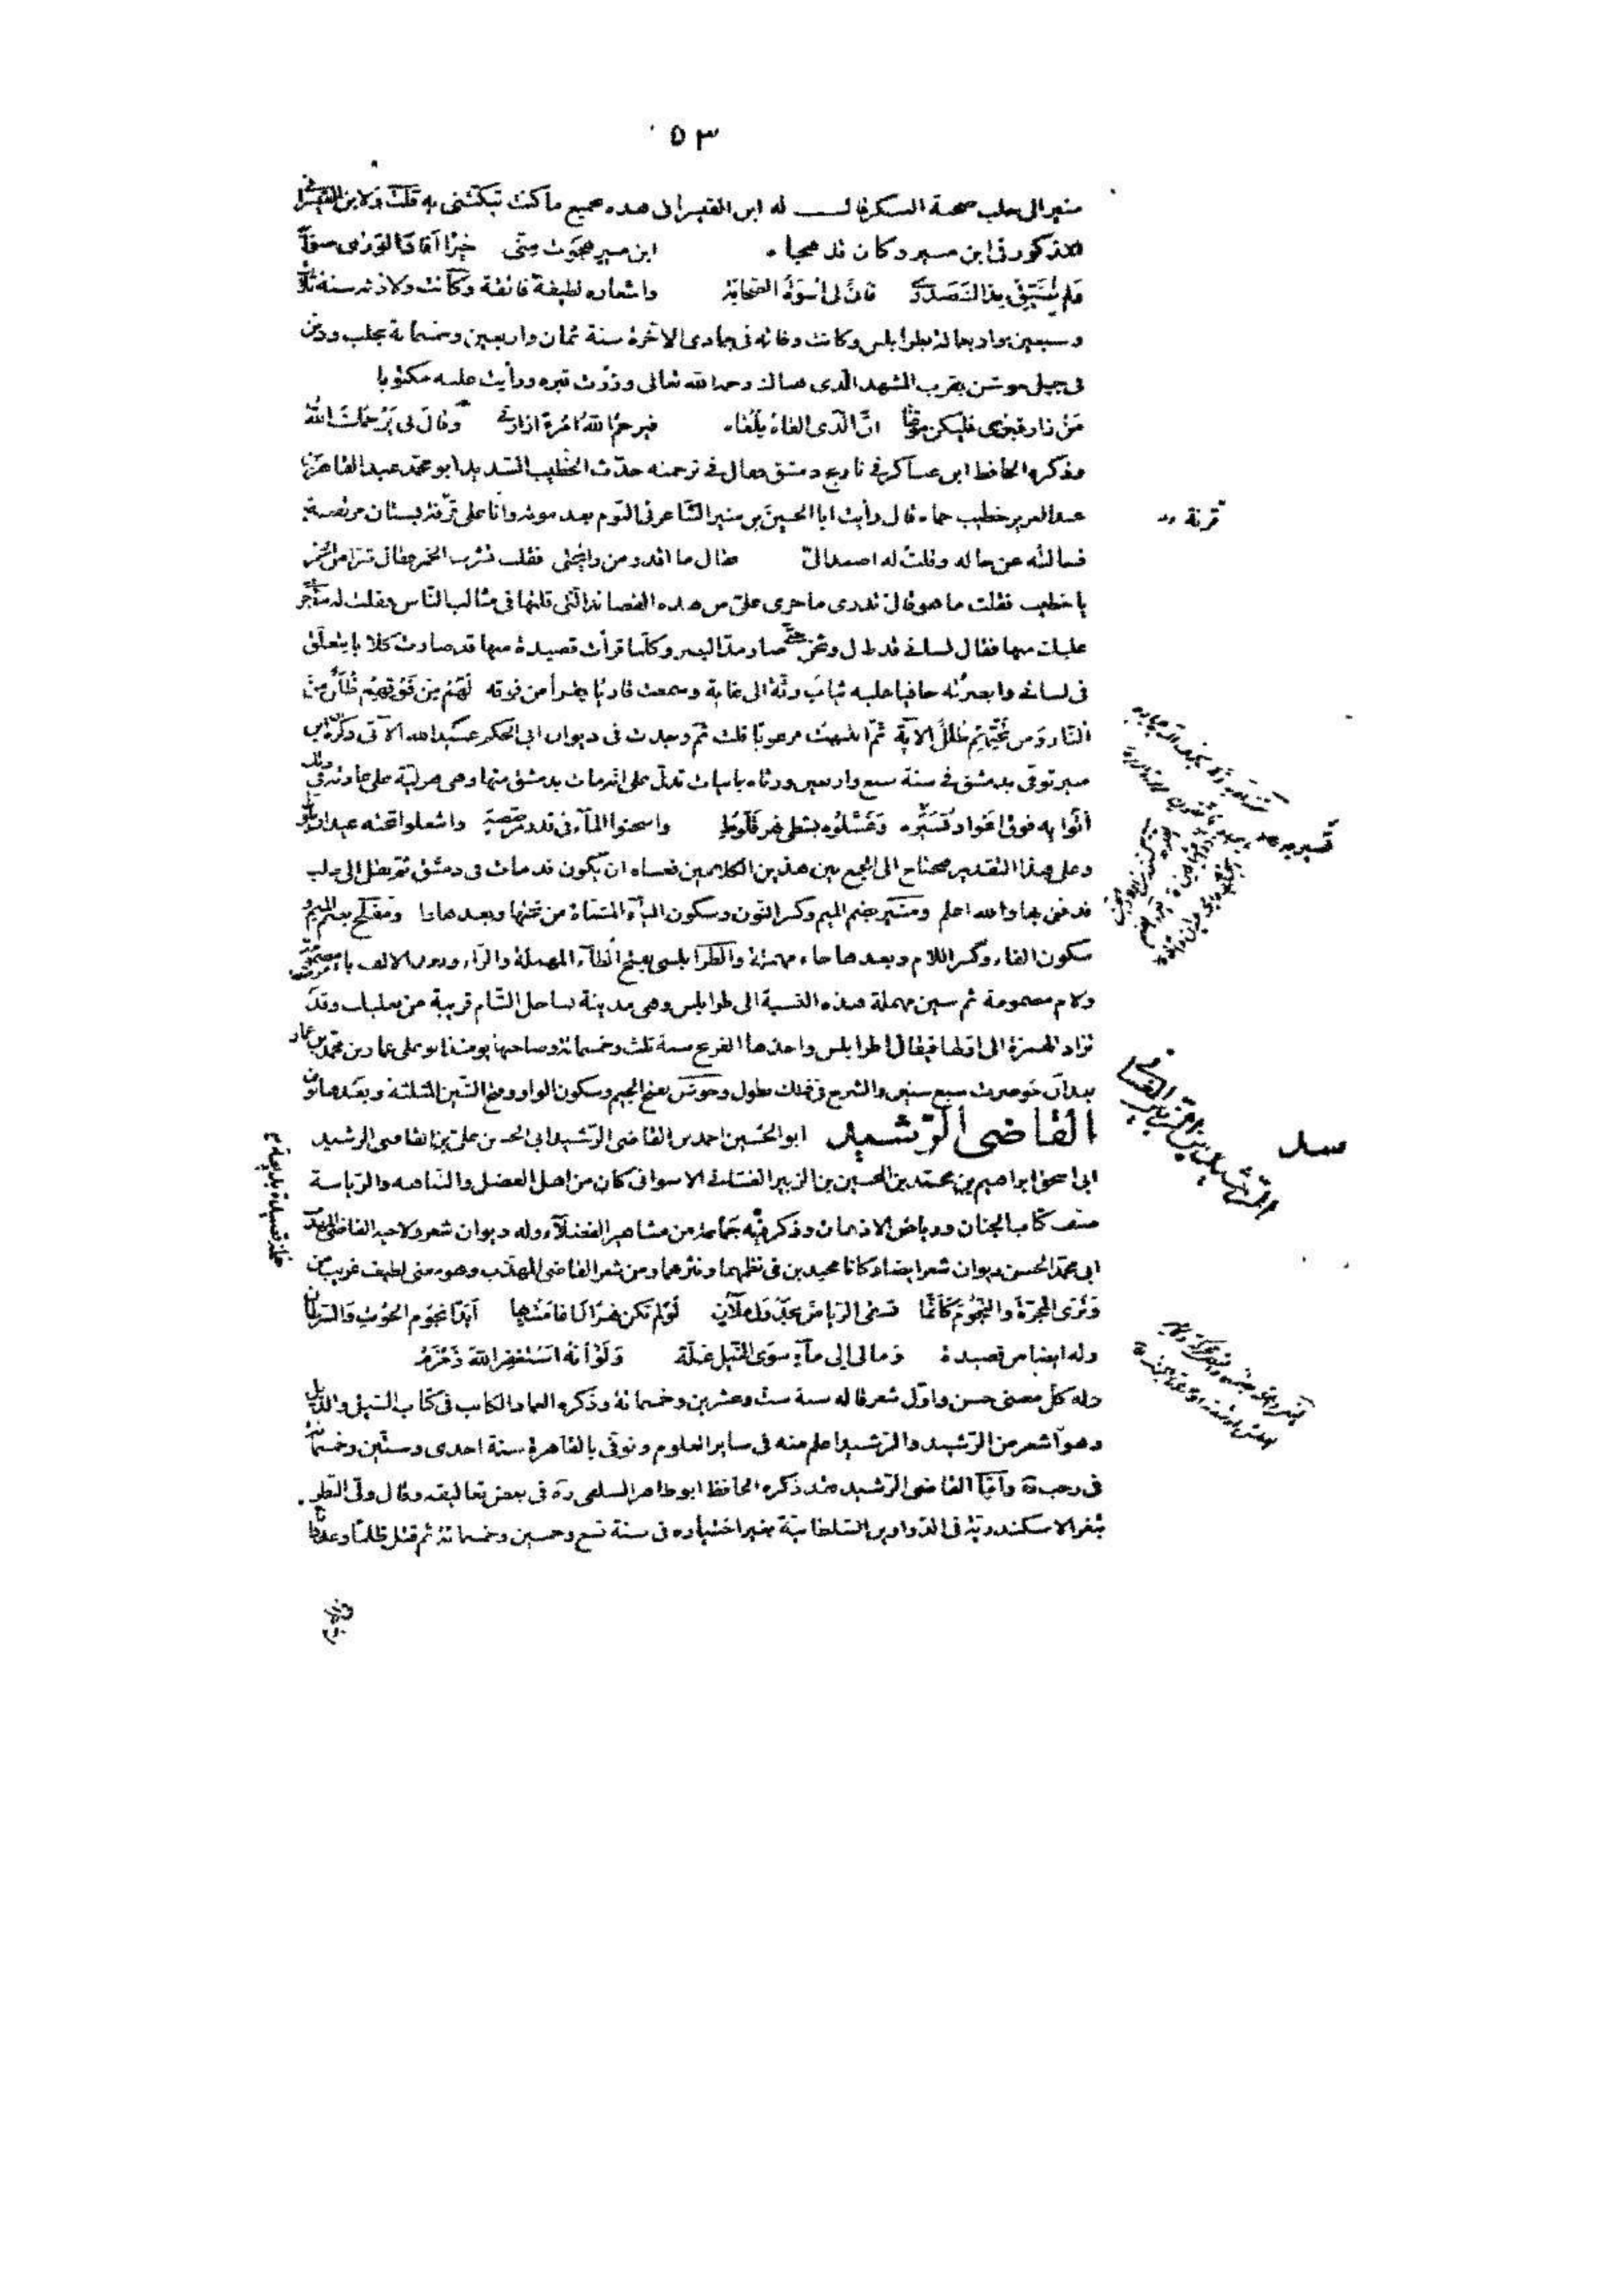 ٥٣
منير الى حلب صحبة العسكر قال له ابن القيسرانى هذه بجميع ما كنت تبكتنى به قلت ولابن القيسرانى
المذكور فى ابن منير وكان قد هجاه ابن منير هجوت منى خبرا افاد الورى صوابه
ولم تضيق بذاك صدرى فان لى اسوة الصحابة واشعاره لطيفة فائقة وكانت ولادته سنة ثلث
وسبعين واربعمائة بطرابلس وكانت وفاته فى جمادى الآخرة سنة ثمان واربعين وخمسمائة بحلب ودفن
فى جبل جوشن بقرب المشهد الذى هناك رحمه الله تعالى وزرت قبره ورأيت عليه مكتوبا
من زار قبرى فليكن موقنا ان الذى القاه يلقاه فيرحم الله امرءا زارنى وقال لى يرحمك الله
وذكره الحافظ ابن عساكر فى تاريخ دمشق فقال فى ترجمته حدث الخطيب السديد ابو محمد عبد القاهر بن
عبد العزيز خطيب حماه قال رأيت ابا الحسين بن منير الشاعر فى النوم بعد موته وانا على قرنة بستان مرتفعة
قرنة
فسألته عن حاله وقلت له اصعد الى فقال ما اقدر من رائحتى فقلت تشرب الخمر فقال شرا من الخمر
يا خطيب فقلت ما هو قال تدرى ما جرى على من هذه القصائد التى قلتها فى مثالب الناس فقلت له ما جرى
عليك منها فقال لسانى قد طال وثخن حتى صار مد البصر وكلما قرأت قصيدة منها قد صارت كلابا يتعلق
فى لسانى وابصرته حافيا عليه ثياب رثة الى غاية وسمعت قارئا يقرأ من فوقه لهم من فوقهم ظلل من
النار ومن تحتهم ظلل الآية ثم انتبهت مرعوبا قلت ثم وجدت فى ديوان ابى الحكم عبيد الله الآتى ذكره ان ابن
منير توفى بدمشق فى سنة سبع واربعين ورثاه بابيات تدل على انه مات بدمشق منها وهى هزلية على عادته فى ذلك
اتوا به فوق اعواد تسيره وغسلوه بشطى نهر قلوط واسخنوا الماء فى قدر مرصصة واشعلوا تحته عيدان بلوط
وعلى هذا التقدير فيحتاج الى الجمع بين هذين الكلامين فعساه ان يكون قد مات فى دمشق ثم نقل الى حلب
فدفن بها والله اعلم ومنير بضم الميم وكسر النون وسكون الياء المثناة من تحتها وبعدها راء ومفلح بضم الميم و
سكون الفاء وكسر اللام وبعدها حاء مهملة والطرابلسى بفتح الطاء المهملة والراء وبعد الالف باء مضمومة
ولام مضمومة ثم سين مهملة هذه النسبة الى طرابلس وهى مدينة بساحل الشام قريبة من بعلبك وقد
تزاد الهمزة الى اولها فيقال اطرابلس واخذها الفرنج سنة ثلث وخمسمائة وصاحبها يومئذ ابو على عمار بن محمد بن عمار
بعد ان حوصرت سبع سنين والشرح فى ذلك يطول وجوشن بفتح الجيم وسكون الواو وفتح الشين المثلثة وبعدها نون
القاضى الرشيد ابو الحسين احمد بن القاضى الرشيد ابى الحسن على بن القاضى الرشيد
ابى اسحق ابراهيم بن محمد بن الحسين بن الزبير الغسانى الاسوانى كان من اهل الفضل والنباهة والرياسة
صنف كتاب الجنان ورياض الاذهان وذكر فيه جماعة من مشاهير الفضلاء وله ديوان شعر ولاخيه القاضى المهذب
ابى محمد الحسن ديوان شعر ايضا وكانا مجيدين فى نظمهما ونثرهما ومن شعر القاضى المهذب وهو معنى لطيف غريب من
وترى المجرة والنجوم كانما تسقى الرياض بجدول ملآن لو لم تكن نهرا لما غامت بها ابدا نجوم الحوت والسرطان
وله ايضا من قصيدة وما لى الى ماء سوى النيل غلة ولو انه استغفر الله زمزم
وله كل معنى حسن واول شعر قاله سنة ست وعشرين وخمسمائة وذكره العماد الكاتب فى كتاب السيل والذيل
وهو اشعر من الرشيد والرشيد اعلم منه فى ساير العلوم وتوفى بالقاهرة سنة احدى وستين وخمسمائة
فى رجب واما القاضى الرشيد فقد ذكره الحافظ ابو طاهر السلفى ره فى بعض تعاليقه وقال ولى النظر
بثغر الاسكندرية فى الدواوين السلطانية بغير اختياره فى سنة تسع وخمسين وخمسمائة ثم قتل ظلما وعدوانا